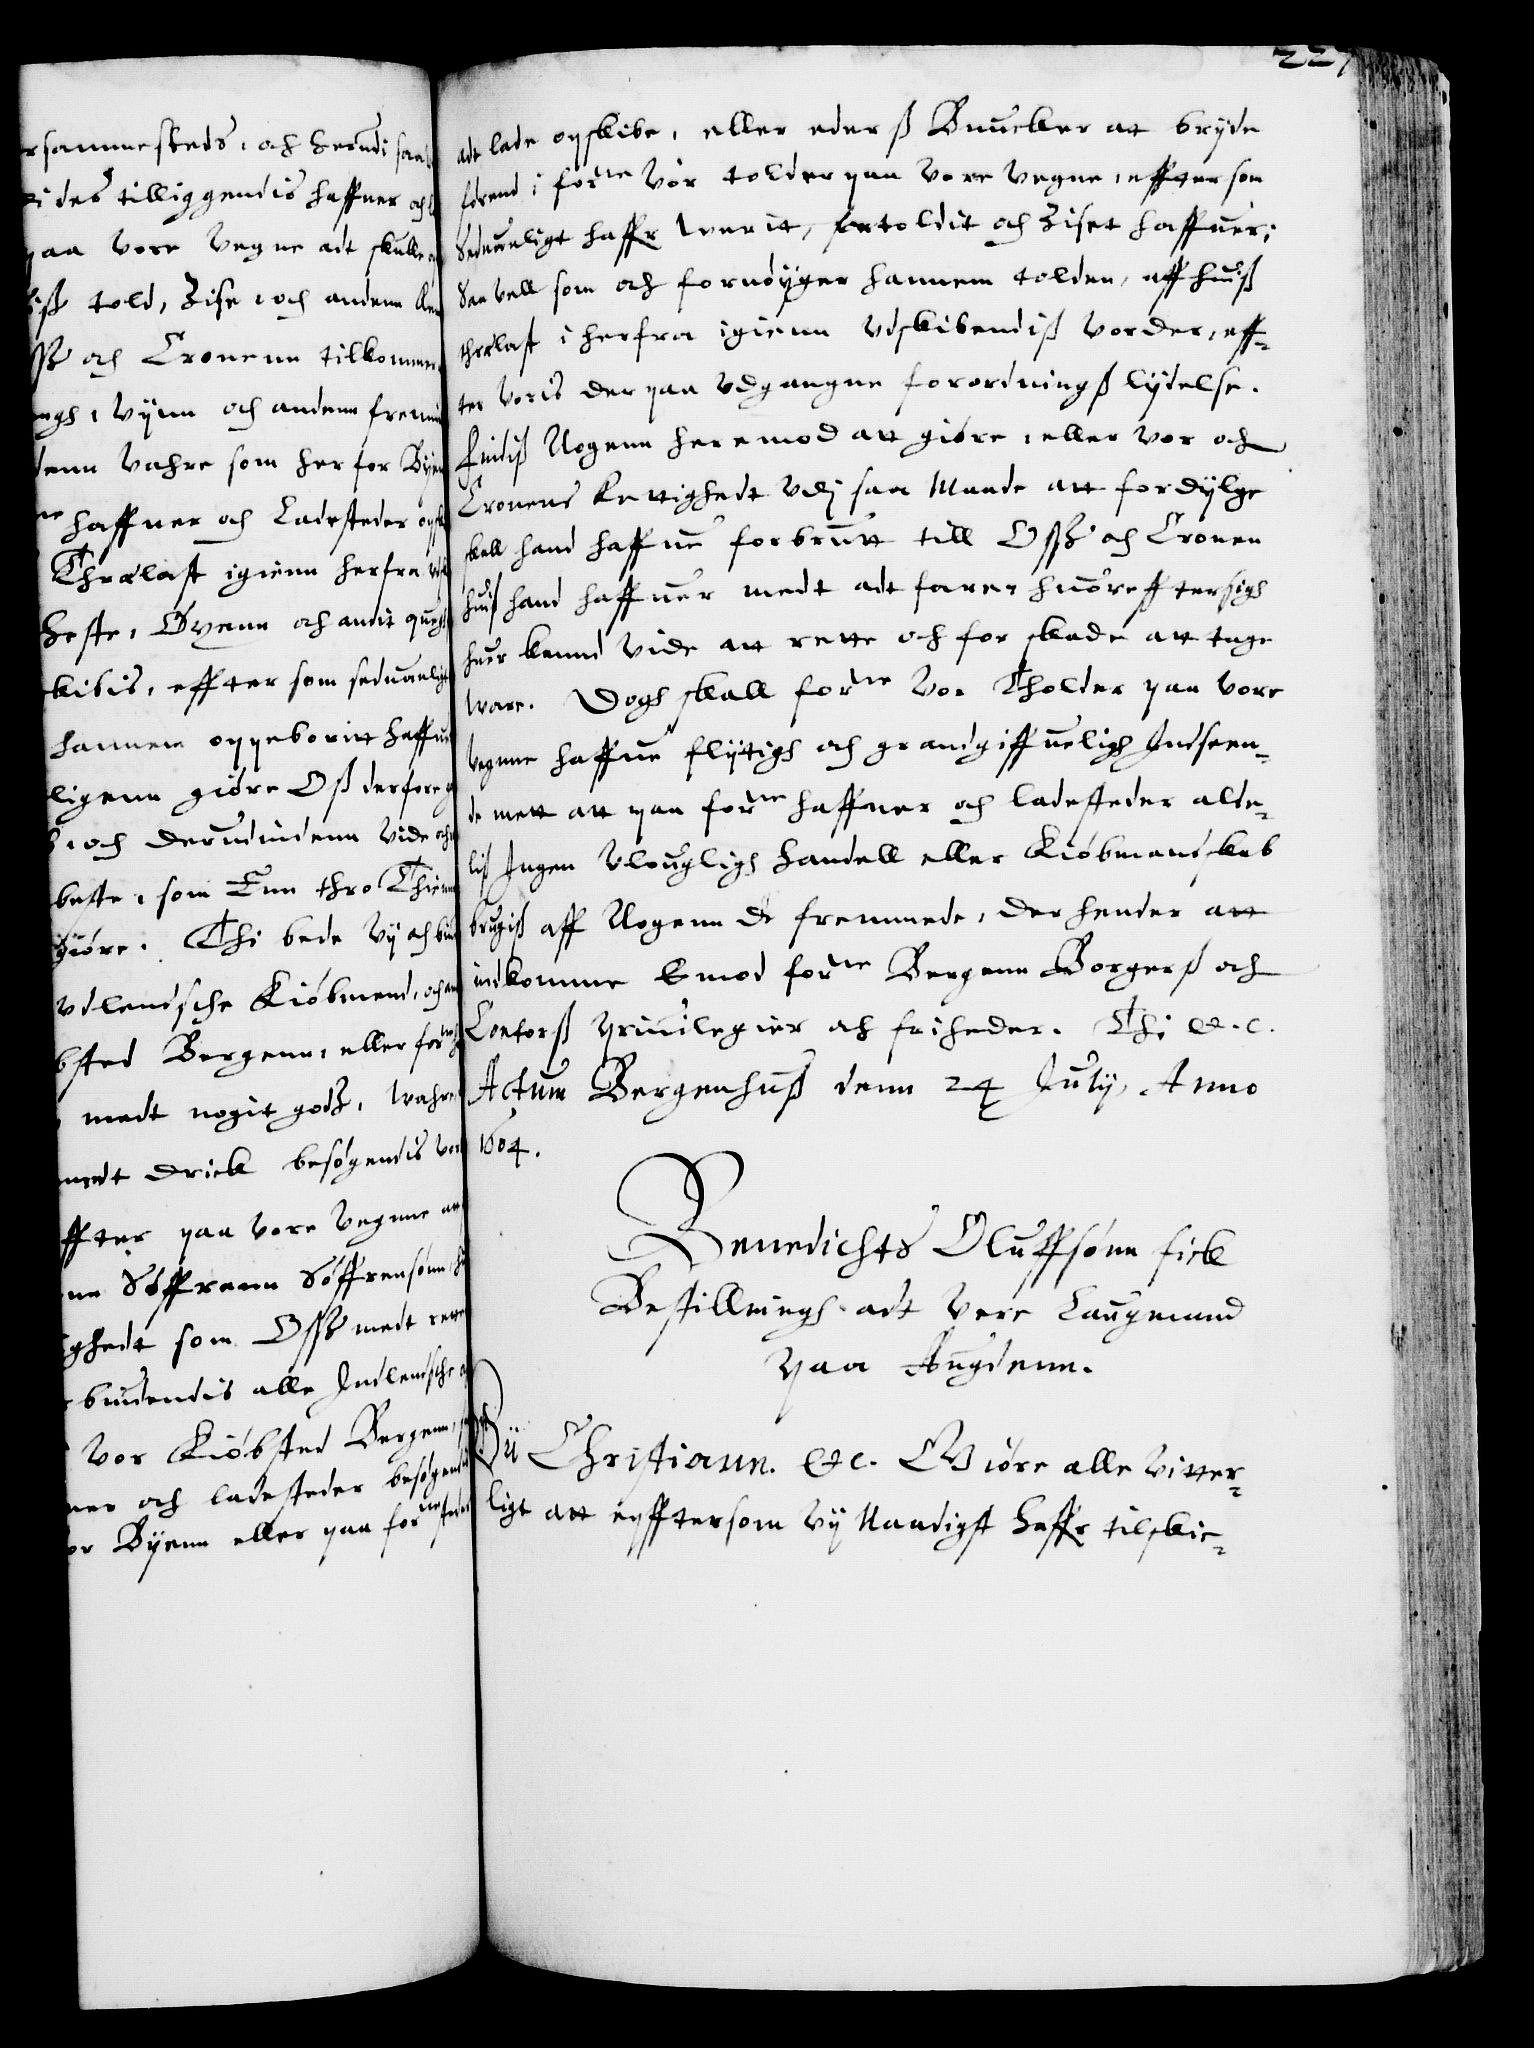 rsammesteds, och herudi saa
des tilliggendis haffner och
paa Vore Vegne adt skulle
told, Zise, och anden
och Cronenn tilkommer
Vijnn och andenn fremm
denn Vahre som her for Byen
haffner och Ladesteder
Thrælast igienn herfra
heste, Øxenn och andit queg
skibis, effter som seduanligt
hannem oppeborritt haffu
ligenn giøre Oß derfore
och derudindenn Vide och
beste, som Enn thro Thienn
giøre. Thi bede Vy och biu
vdlendsche Kiøbmend, och
bsted Bergenn, eller for:ne
medt nogit godß, Wahre
medt drick besøgendis vor
effter paa Vore Vegnne
Søffrenn Søffrensønn
ighedt som Osß medt rette
biudendis alle Indlendsche
Vor Kiøbsted Bergenn,
ner och ladesteder besøgendis
or Byenn eller paa for:ne steder
227
adt lade opskibe, eller eders Buncker at bryde
førend i for:ne Vor tolder paa Vore Vegne, effter som
Seduanligt haffr werit, fortoldit och Ziset haffuer;
Saa vell som och fornøyger hannem tolden, aff huiß
thrælast i herfra igienn Vdskibendiß Vorder, eff-
ter Voris der paa Vdgangne forordningß lydelse.
Findiß Nogenn heremod att giøre, eller Vor och
Cronens Rettighedt Vdj saa Maade att fordylge
skall hand haffue forbrutt till Osß och Cronen
huiß hand haffuer medt adt fare, huoreffter sigh
huer kannd Vide att rette och for skade att tage
ware. Dogh skall for:ne Vor Tholder paa Vore
Vegnne haffue flytigh och grandgiffueligh Indseen-
de mett att paa for:ne haffner och ladesteder alde-
liß Ingen Vlougligh handell eller Kiøbmandskab
brugiß aff Nogenn de fremmede, der hender att
indkomme Emod for:ne Bergenn Borgerß och
Contorß priuilegier och friheder. Thi &.c.
Actum Bergenhuß denn 24 July, Anno
1604.
Benedichts Oluffsønn fick
Bestillningh adt Vere Laugmand
paa Augdenn.
Vy Christiann. &c. Giøre alle Vitter-
ligt att epfftersom Vy Naadigst haffr tilskic-